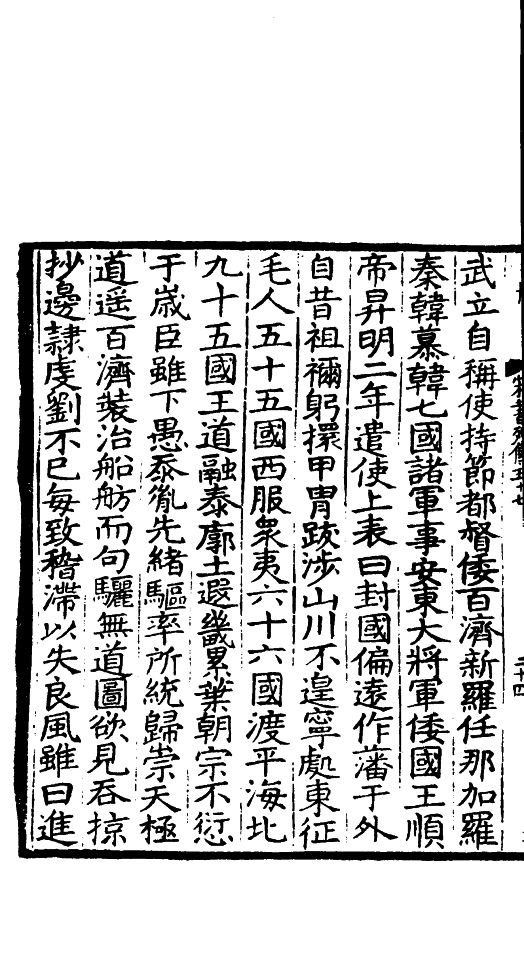 武立自稱使持節都督倭百濟新羅任那加羅
秦韓慕韓七國諸軍事安東大將軍倭國王順
帝昇明二年遣使上表曰封國偏遠作藩于外
自昔祖禰躬擐甲胄跋涉山川不遑寧處東征
毛人五十五國西服衆夷六十六國渡平海北
九十五國王道融泰廓土遐畿累葉朝宗不愆
于歲臣雖下愚忝胤先緒驅率所統歸崇天極
道遥百濟裝治船舫而句驪無道圖欲見吞掠
抄邊隷虔劉不已每致稽滯以失良風雖曰進